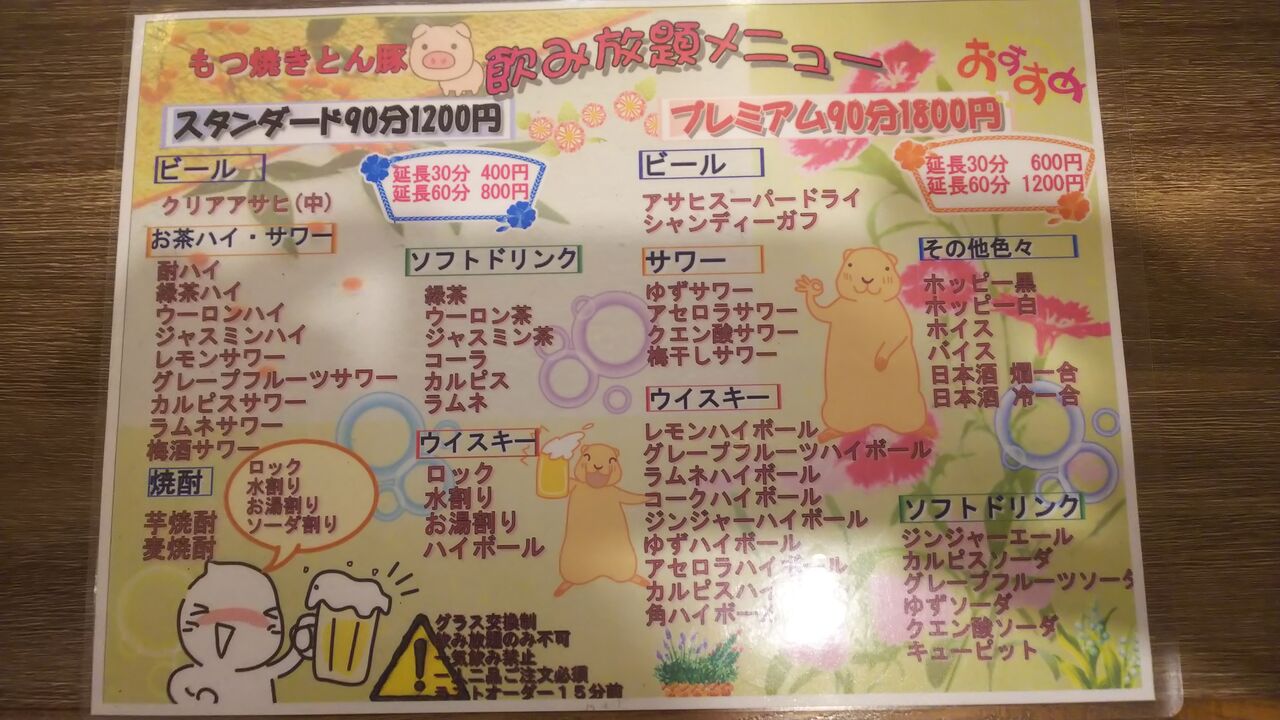 もつ焼きとん豚
飲み放題メニュー
おすすめ
スタンダード90分1200円
ビール
延長30分 400円
延長60分 800円
クリアアサヒ(中)
お茶ハイ・サワー
酎ハイ
緑茶ハイ
ウーロンハイ
ジャスミンハイ
レモンサワー
グレープフルーツサワー
カルピスサワー
ラムネサワー
梅酒サワー
焼酎
芋焼酎
麦焼酎
ロック
水割り
お湯割り
ソーダ割り
ソフトドリンク
緑茶
ウーロン茶
ジャスミン茶
コーラ
カルピス
ラムネ
ウイスキー
ロック
水割り
お湯割り
ハイボール
グラス交換制
飲み放題のみ不可
飲み禁止
二品ご注文必須
オーダー15分前
プレミアム90分1800円
ビール
延長30分 600円
延長60分 1200円
アサヒスーパードライ
シャンディーガフ
サワー
ゆずサワー
アセロラサワー
クエン酸サワー
梅干しサワー
ウイスキー
レモンハイボール
グレープフルーツハイボール
ラムネハイボール
コークハイボール
ジンジャーハイボール
ゆずハイボール
アセロラハイボール
カルピスハイ
角ハイボール
その他色々
ホッピー黒
ホッピー白
ホイス
バイス
日本酒 燗一合
日本酒 冷一合
ソフトドリンク
ジンジャーエール
カルピスソーダ
グレープフルーツソーダ
ゆずソーダ
クエン酸ソーダ
キューピット